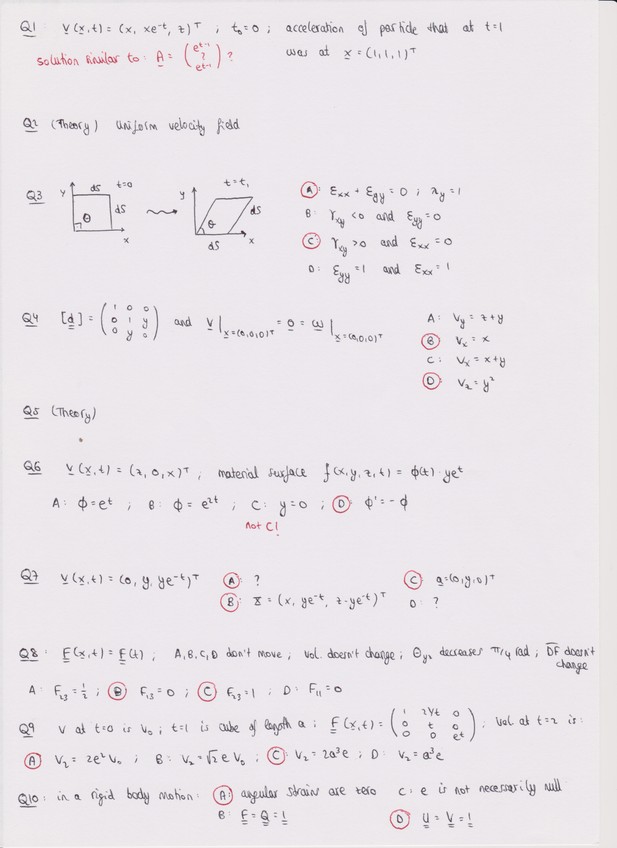 Q1 v(x,t) = (x, xe⁻ᵗ, z)ᵀ ; t₀=0 ; acceleration of particle that at t=1
solution similar to: A = (eᵗ⁻¹ ? eᵗ⁻¹) ? was at x = (1,1,1)ᵀ
Q2 (Theory) Uniform velocity field
Q3 y dS t=0 dS θ x y t=t₁ dS θ dS x
A: εxx + εyy = 0 ; λy = 1
B: γxy <0 and εyy = 0
C: γxy >0 and εxx = 0
D: εyy = 1 and εxx = 1
Q4 [d] = (1 0 0 / 0 1 y / 0 y 0) and v|x=(0,0,0)ᵀ = 0 = ω|x=(0,0,0)ᵀ
A: Vy = z+y
B: Vx = x
C: Vx = x+y
D: Vz = y²
Q5 (Theory)
Q6 v(x,t) = (z, 0, x)ᵀ ; material surface f(x,y,z,t) = ϕ(t)·yeᵗ
A: ϕ=eᵗ ; B: ϕ = e²ᵗ ; C: y=0 ; D: ϕ' = -ϕ
not C!
Q7 v(x,t) = (0, y, ye⁻ᵗ)ᵀ A: ? C: a=(0,y,0)ᵀ
B: X = (x, ye⁻ᵗ, z-ye⁻ᵗ)ᵀ D: ?
Q8: F(x,t) = F(t) ; A,B,C,D don't move ; vol. doesn't change ; θyz decreases π/4 rad ; DF doesn't change
A: F₂₃=½ ; B: F₁₃=0 ; C: F₂₃=1 ; D: F₁₁=0
Q9 V at t=0 is V₀ ; t=1 is cube of length a ; F(x,t) = (1 2Yt 0 / 0 t 0 / 0 0 eᵗ) ; Vol at t=2 is:
A: V₂ = 2e²V₀ ; B: V₂=√2 e V₀ ; C: V₂ = 2a³e ; D: V₂ = a³e
Q10: in a rigid body motion: A: angular strains are zero C: e is not necessarily null
B: F = Q = 1 D: U = V = 1